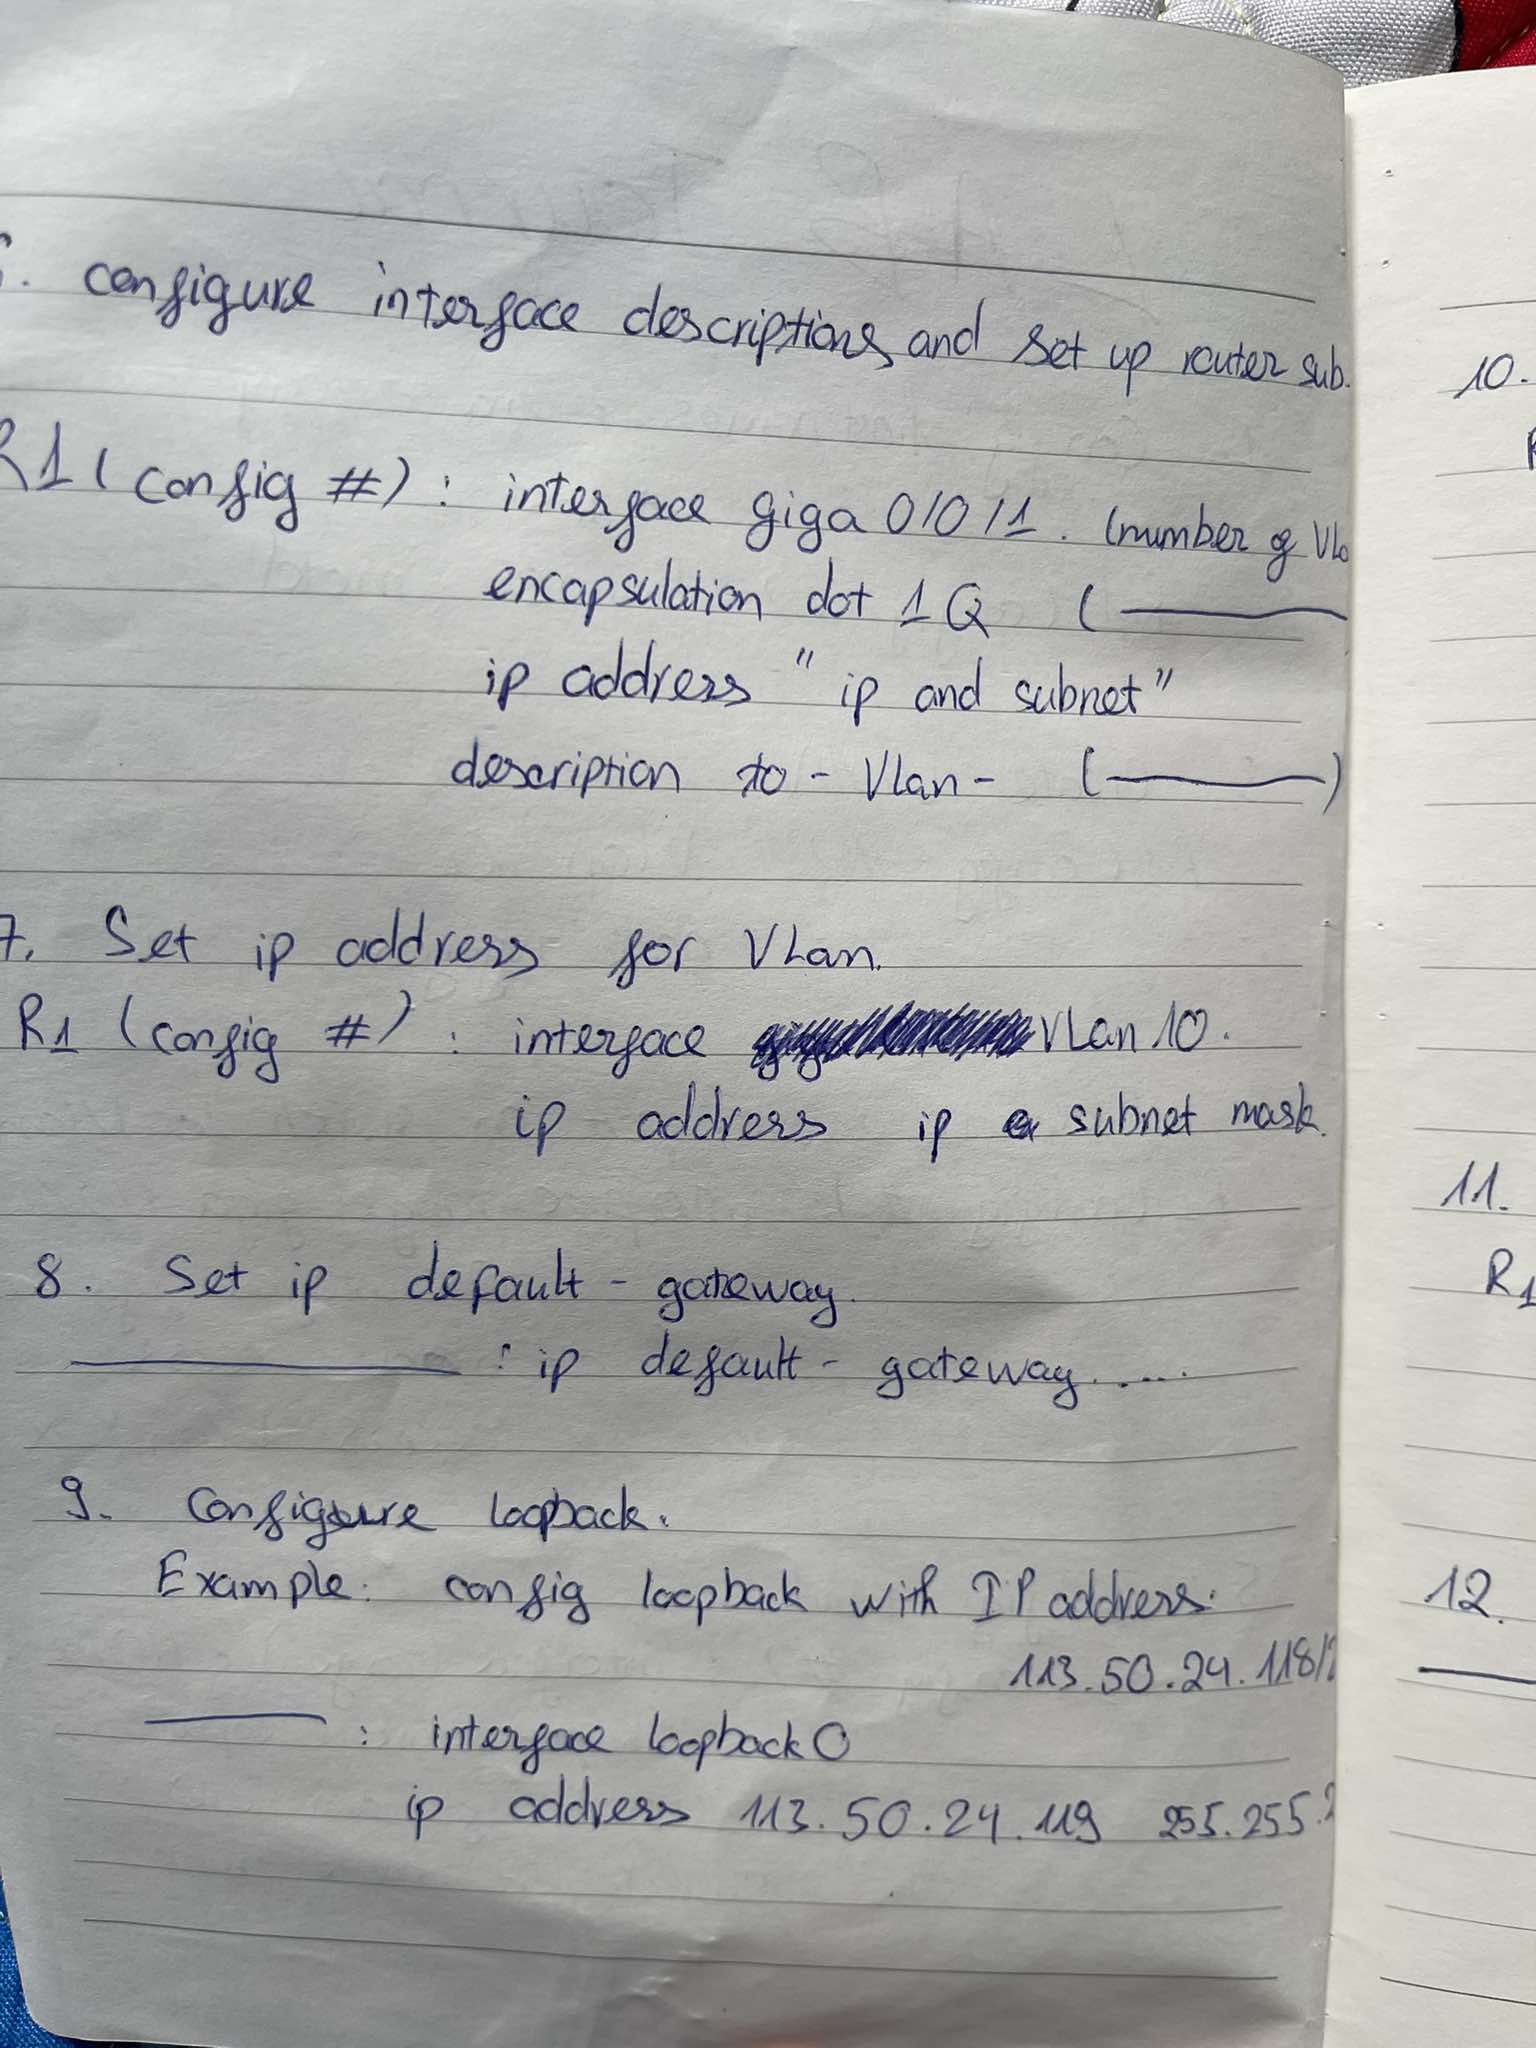 . configure interface descriptions and set up router sub.
R1 (config #) : interface giga 0/0/1. (number of Vla
encapsulation dot 1Q (
ip address "ip and subnet"
description to - Vlan - ( )
7. Set ip address for VLan.
R1 (config #) : interface VLan 10.
ip address ip & subnet mask.
8. Set ip default - gateway.
: ip default - gateway.....
9. Configure loopback.
Example: config loopback with IP address:
113.50.24.118/2
: interface loopback 0
ip address 113.50.24.119 255.255.2
10.
R
11.
R1
12.